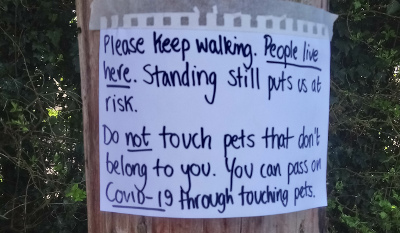 Please Keep walking. People live
here. Standing still puts us at
risk.
Do not touch pets that don't
belong to you. You can pass on
Covid-19 through touching pets.